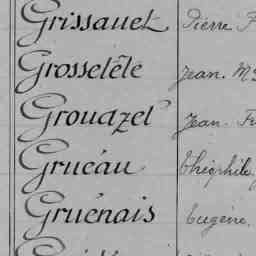 Grissauet Pierre F
Grossetête Jean. M
Grouazel Jean. Fr
Gruéau Théophile
Gruénais Eugène.